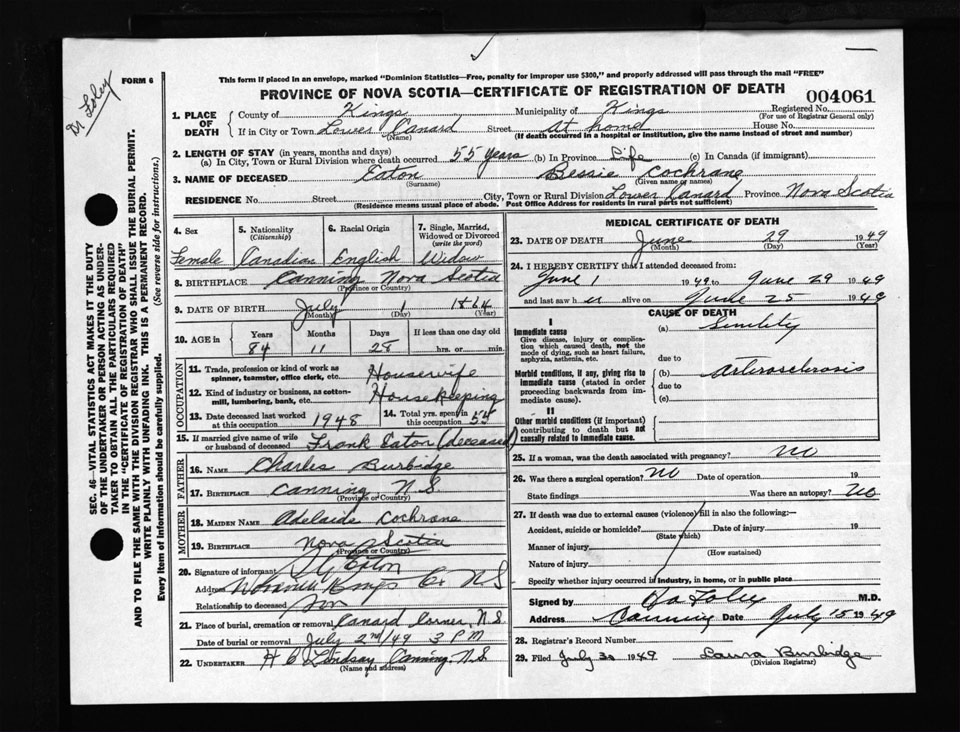 Dr Foley
FORM 6
This form if placed in an envelope, marked "Dominion Statistics—Free, penalty for improper use $300," and properly addressed will pass through the mail "FREE"
PROVINCE OF NOVA SCOTIA—CERTIFICATE OF REGISTRATION OF DEATH
004061
SEC. 46—VITAL STATISTICS ACT MAKES IT THE DUTY
OF THE UNDERTAKER OR PERSON ACTING AS UNDER-
TAKER TO OBTAIN ALL THE PARTICULARS REQUIRED
IN THE "CERTIFICATE OF REGISTRATION OF DEATH"
AND TO FILE THE SAME WITH THE DIVISION REGISTRAR WHO SHALL ISSUE THE BURIAL PERMIT.
WRITE PLAINLY WITH UNFADING INK. THIS IS A PERMANENT RECORD.
Every item of Information should be carefully supplied. (See reverse side for instructions.)
1. PLACE OF DEATH
County of Kings Municipality of Kings Registered No.
(For use of Registrar General only)
If in City or Town Lower Canard Street At home House No.
(Name) (If death occurred in a hospital or institution, give the name instead of street and number)
2. LENGTH OF STAY (in years, months and days)
(a) In City, Town or Rural Division where death occurred 55 years (b) In Province Life (c) In Canada (if immigrant)
3. NAME OF DECEASED Eaton Bessie Cochrane
(Surname) (Given name or names)
RESIDENCE No. Street City, Town or Rural Division Lower Canard Province Nova Scotia
(Residence means usual place of abode. Post Office Address for residents in rural parts not sufficient)
4. Sex
Female
5. Nationality
(Citizenship)
Canadian
6. Racial Origin
English
7. Single, Married,
Widowed or Divorced
(write the word)
Widow
8. BIRTHPLACE Canning Nova Scotia
(Province or Country)
9. DATE OF BIRTH July 1 1864
(Month) (Day) (Year)
10. AGE in
Years Months Days If less than one day old
84 11 28 hrs. or min.
OCCUPATION
11. Trade, profession or kind of work as
spinner, teamster, office clerk, etc. Housewife
12. Kind of industry or business, as cotton-
mill, lumbering, bank, etc. Housekeeping
13. Date deceased last worked
at this occupation 1948
14. Total yrs. spent
in this occupation 55
15. If married give name of wife
or husband of deceased Frank Eaton (deceased)
FATHER
16. NAME Charles Burbidge
17. BIRTHPLACE Canning N.S.
(Province or Country)
MOTHER
18. MAIDEN NAME Adelaide Cochrane
19. BIRTHPLACE Nova Scotia
(Province or Country)
20. Signature of informant Eaton
Address Kings Co N.S
Relationship to deceased Son
21. Place of burial, cremation or removal Canard Corner, N.S.
Date of burial or removal July 2nd/49 3 PM
22. UNDERTAKER H C Lindsay Canning N.S.
(Name and address)
MEDICAL CERTIFICATE OF DEATH
23. DATE OF DEATH June 29 1949
(Month) (Day) (Year)
24. I HEREBY CERTIFY that I attended deceased from:
June 1 1949 to June 29 1949
and last saw h er alive on June 25 1949
CAUSE OF DEATH
I
Immediate cause (a) Senility
Give disease, injury or complica-
tion which caused death, not the
mode of dying, such as heart failure,
asphyxia, asthenia, etc.
due to
Morbid conditions, if any, giving rise to (b) Arteriosclerosis
immediate cause (stated in order
proceeding backwards from im-
mediate cause).
due to
(c)
II
Other morbid conditions (if important)
contributing to death but not
causally related to immediate cause.
25. If a woman, was the death associated with pregnancy? No
26. Was there a surgical operation? No Date of operation 19
State findings Was there an autopsy? No
27. If death was due to external causes (violence) fill in also the following:—
Accident, suicide or homicide? Date of injury 19
(State which)
Manner of injury
(How sustained)
Nature of injury
Specify whether injury occurred in industry, in home, or in public place
Signed by Foley M.D.
Address Canning Date July 15 1949
28. Registrar's Record Number
29. Filed July 30 1949 Laura Burbidge
(Division Registrar)